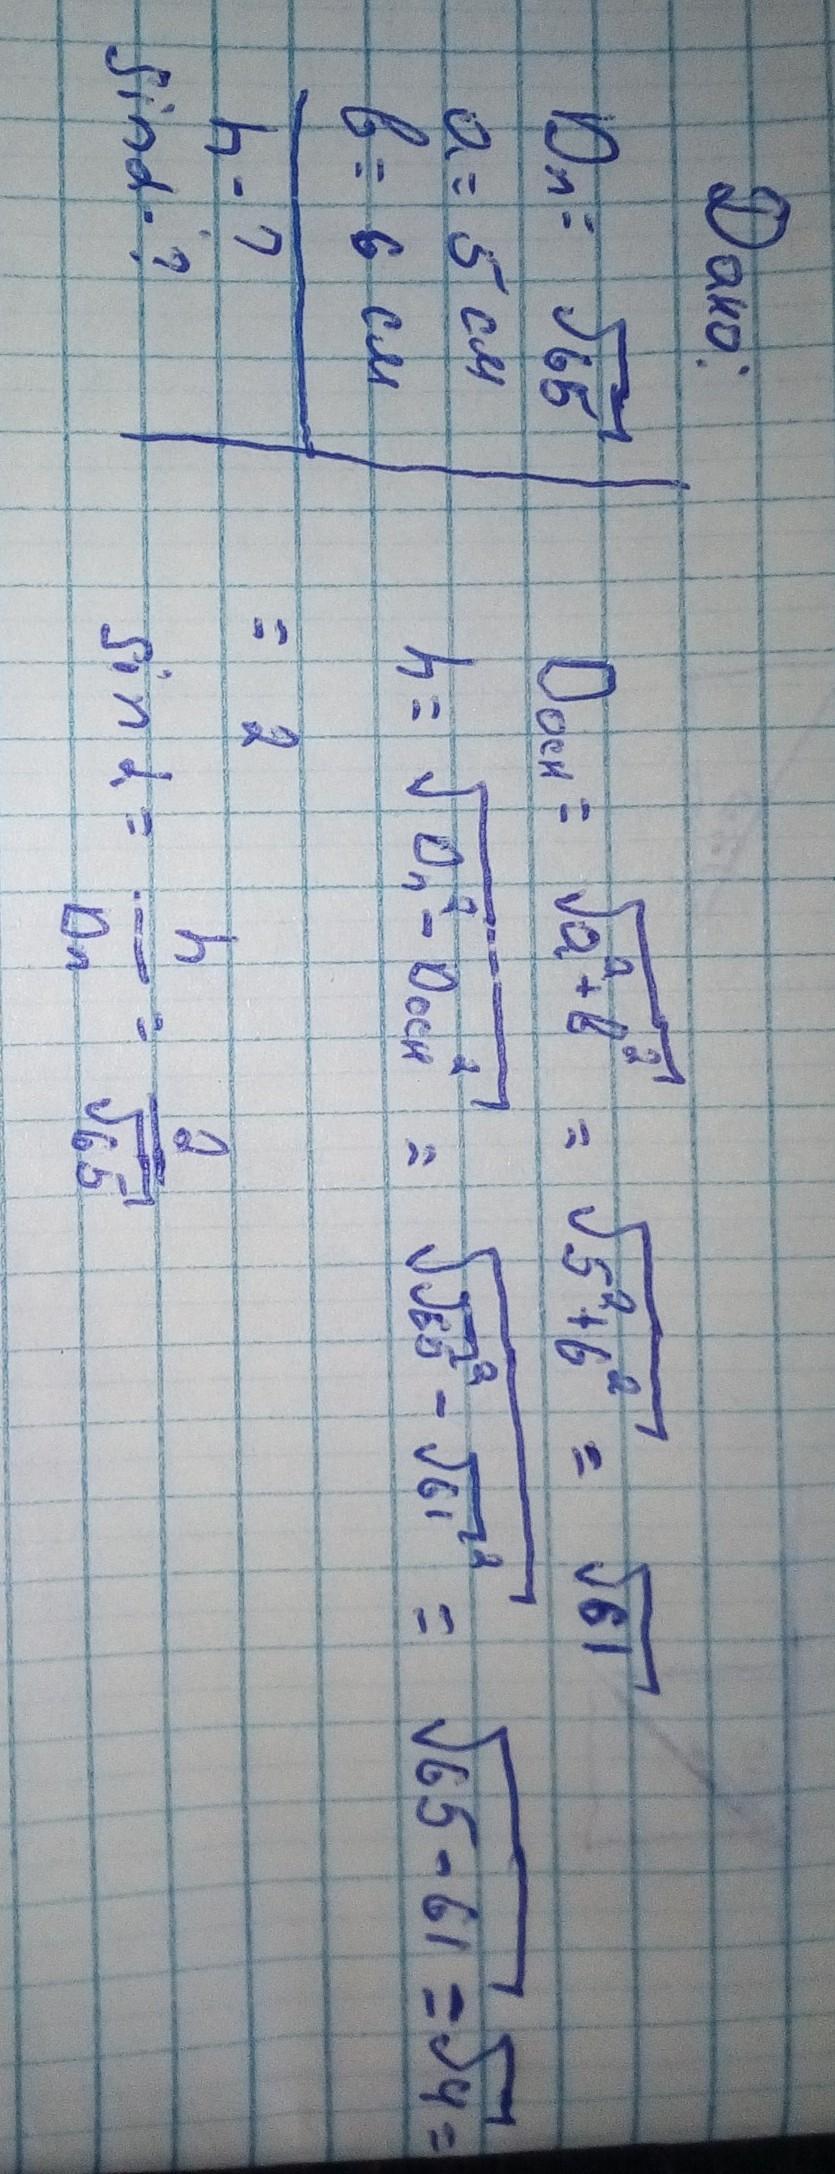 Дано:
Dп = √65
a = 5 см
b = 6 см
h - ?
sin α - ?
Dосн = √a²+b² = √5²+6² = √61
h = √Dп² - Dосн² = √√65² - √61² = √65 - 61 = √4 =
= 2
sin α = h/Dп = 2/√65